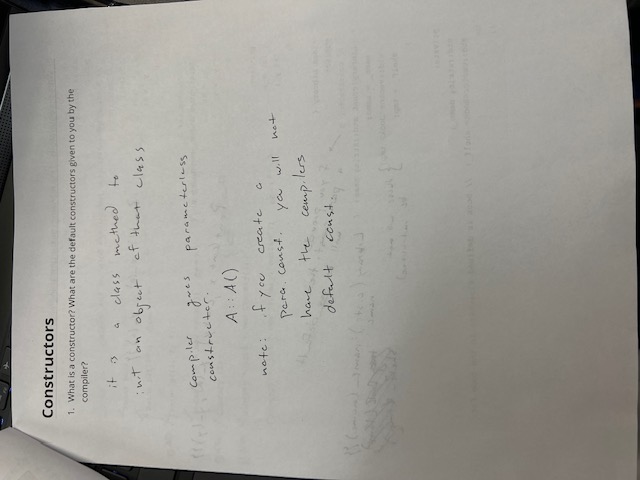 Constructors
1. What is a constructor? What are the default constructors given to you by the
compiler?
it is a class method to
init an object of that class
compiler gives parameterless
constructor.
A::A()
note: if you create a
para. const. you will not
have the compilers
defalt const.